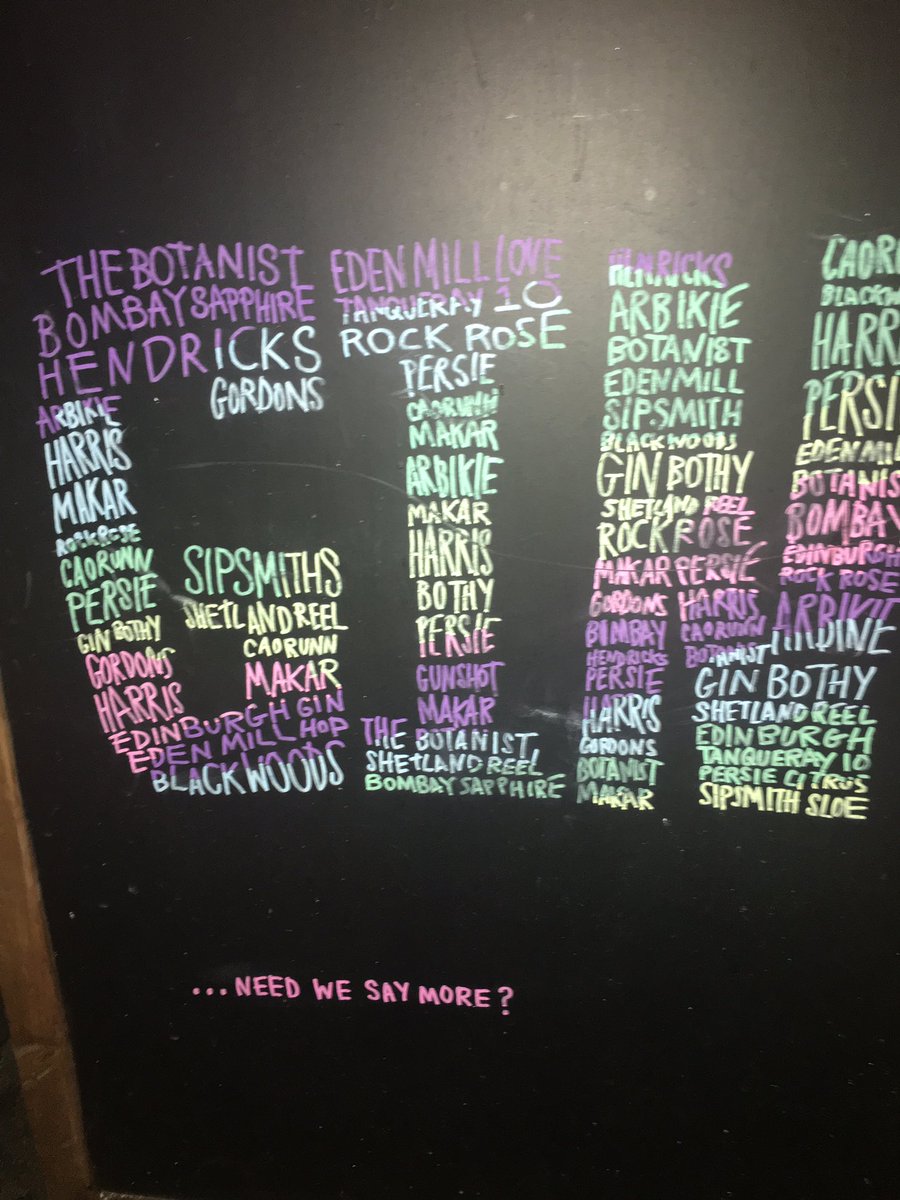 THE BOTANIST
BOMBAY SAPPHIRE
HENDRICKS
GORDONS
ARBIKIE
HARRIS
MAKAR
ROCK ROSE
CAORUNN
PERSIE
GIN BOTHY
GORDONS
HARRIS
SIPSMITHS
SHETLAND REEL
CAORUNN
MAKAR
EDINBURGH GIN
EDEN MILL HOP
BLACKWOODS
EDEN MILL LOVE
TANQUERAY 10
ROCK ROSE
PERSIE
CAORUNN
MAKAR
ARBIKIE
MAKAR
HARRIS
BOTHY
PERSIE
GUNSHOT
MAKAR
THE BOTANIST
SHETLAND REEL
BOMBAY SAPPHIRE
HENRICKS
ARBIKIE
BOTANIST
EDEN MILL
SIPSMITH
BLACKWOODS
GIN BOTHY
SHETLAND REEL
ROCK ROSE
MAKAR PERSIE
GORDONS HARRIS
BIMBAY CAORUNN
HENDRICKS BOTANIST
PERSIE
HARRIS
GORDONS
BOTANIST
MAKAR
CAORU
BLACKW
HARRI
PERSI
EDEN MIL
BOTANIS
BOMBAY
EDINBURGH
ROCK ROSE
ARBIKIE
GIN BOTHY
SHETLAND REEL
EDINBURGH
TANQUERAY 10
PERSIE CITRUS
SIPSMITH SLOE
...NEED WE SAY MORE?